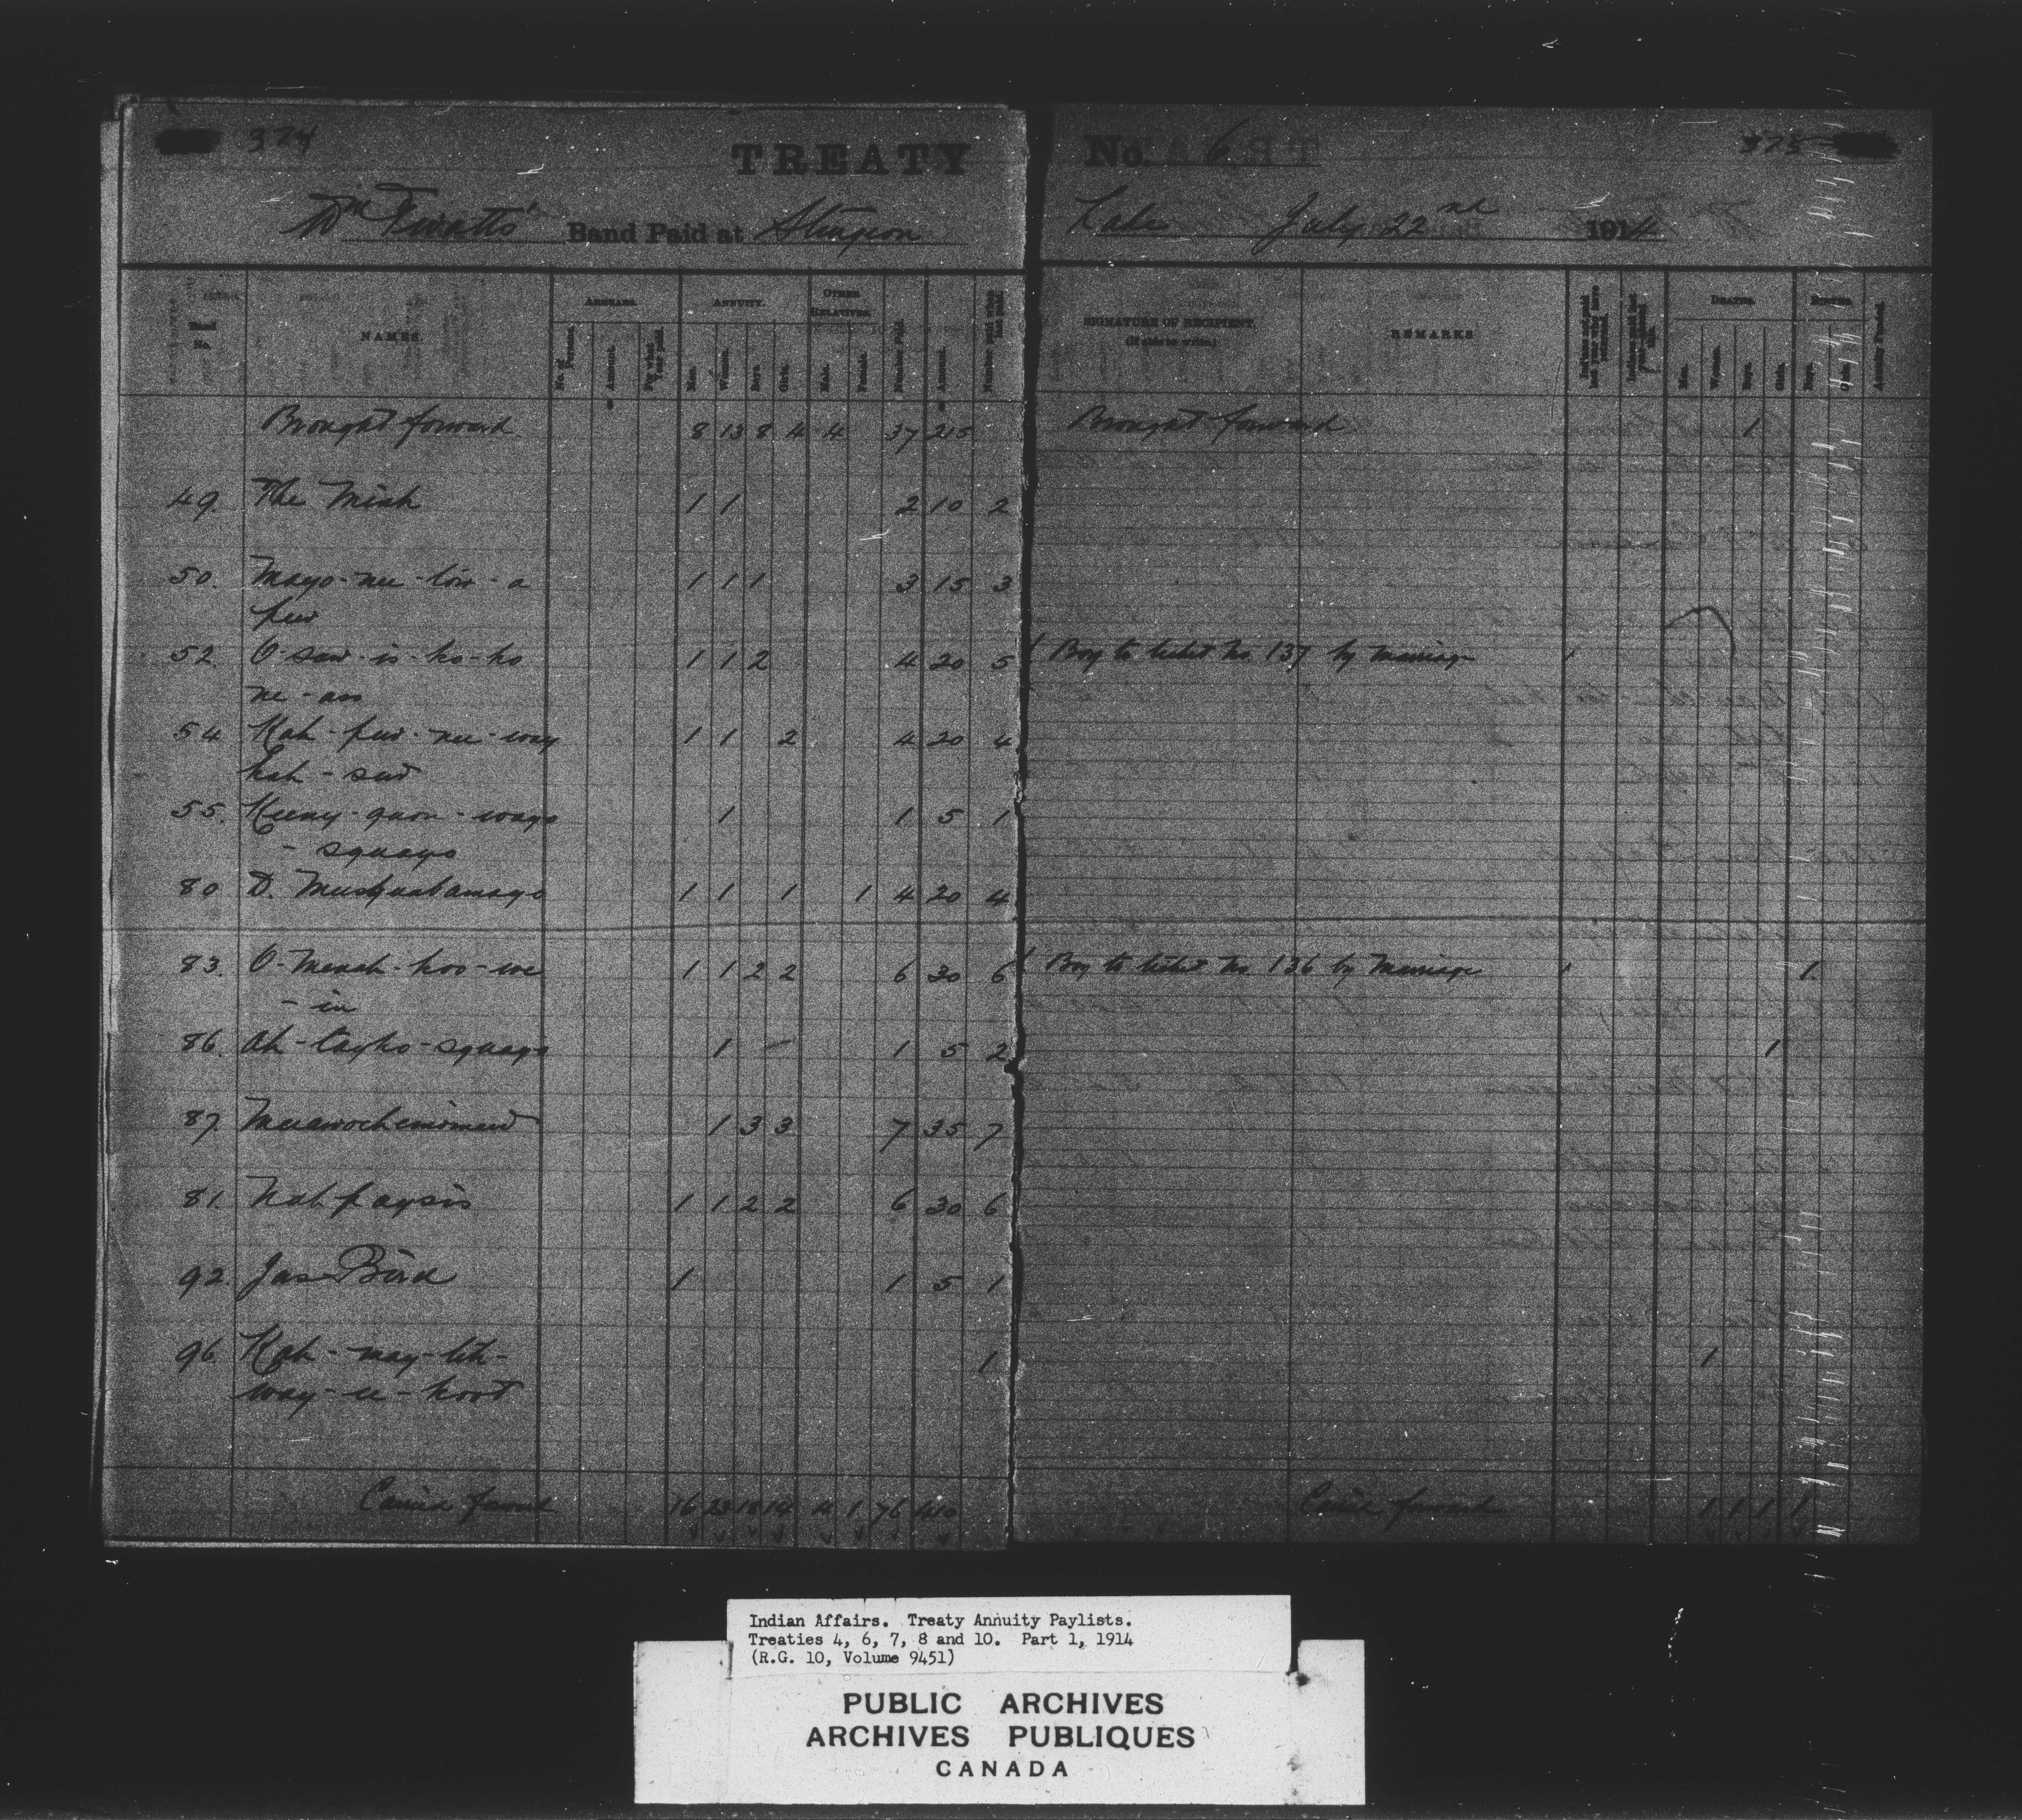 374
TREATY No. 6 375
Wm Twatts' Band Paid at Sturgeon Lake July 22nd 1914
Band No. NAMES. ARREARS. ANNUITY. OTHER RELATIVES. SIGNATURE OF RECIPIENT. (If able to write.) REMARKS DEATHS. BIRTHS.
No. of Persons. Amount. For what Year paid. Men. Women. Boys. Girls. Male. Female. Number Paid. Amount. Men. Women. Boys. Girls. Boys. Girls.
Brought forward 8 13 8 4 4 37 215 Brought forward 1
49. The Mink 1 1 2 10 2
50. Mayo-nee-tow-a 1 1 1 3 15 3
pew
52. O-saw-is-ko-ko 1 1 2 4 20 5 1 Boy to ticket No. 137 by marriage 1
ne-as
54. Kah-pew-nee-way 1 1 2 4 20 4
kah-sew
55. Keeny-quon-ways 1 1 5 1
- squayo
80 D. Muskuabamayo 1 1 1 1 4 20 4
83. O-Menah-koo-we 1 1 2 2 6 30 6 1 Boy to ticket No. 136 by Marriage 1 1
- in
86. Ah-tayko-squayo 1 1 5 2 1
87. 1 3 3 7 35 7
81. Nahpaysis 1 1 2 2 6 30 6
92. Jas Bird 1 1 5 1
96. Kah-may-tih- 1 1
way-u-koot
Carried forward 16 23 18 14 4 1 76 410 Carried forward 1 1 1 1
Indian Affairs. Treaty Annuity Paylists.
Treaties 4, 6, 7, 8 and 10. Part 1, 1914
(R.G. 10, Volume 9451)
PUBLIC ARCHIVES
ARCHIVES PUBLIQUES
CANADA